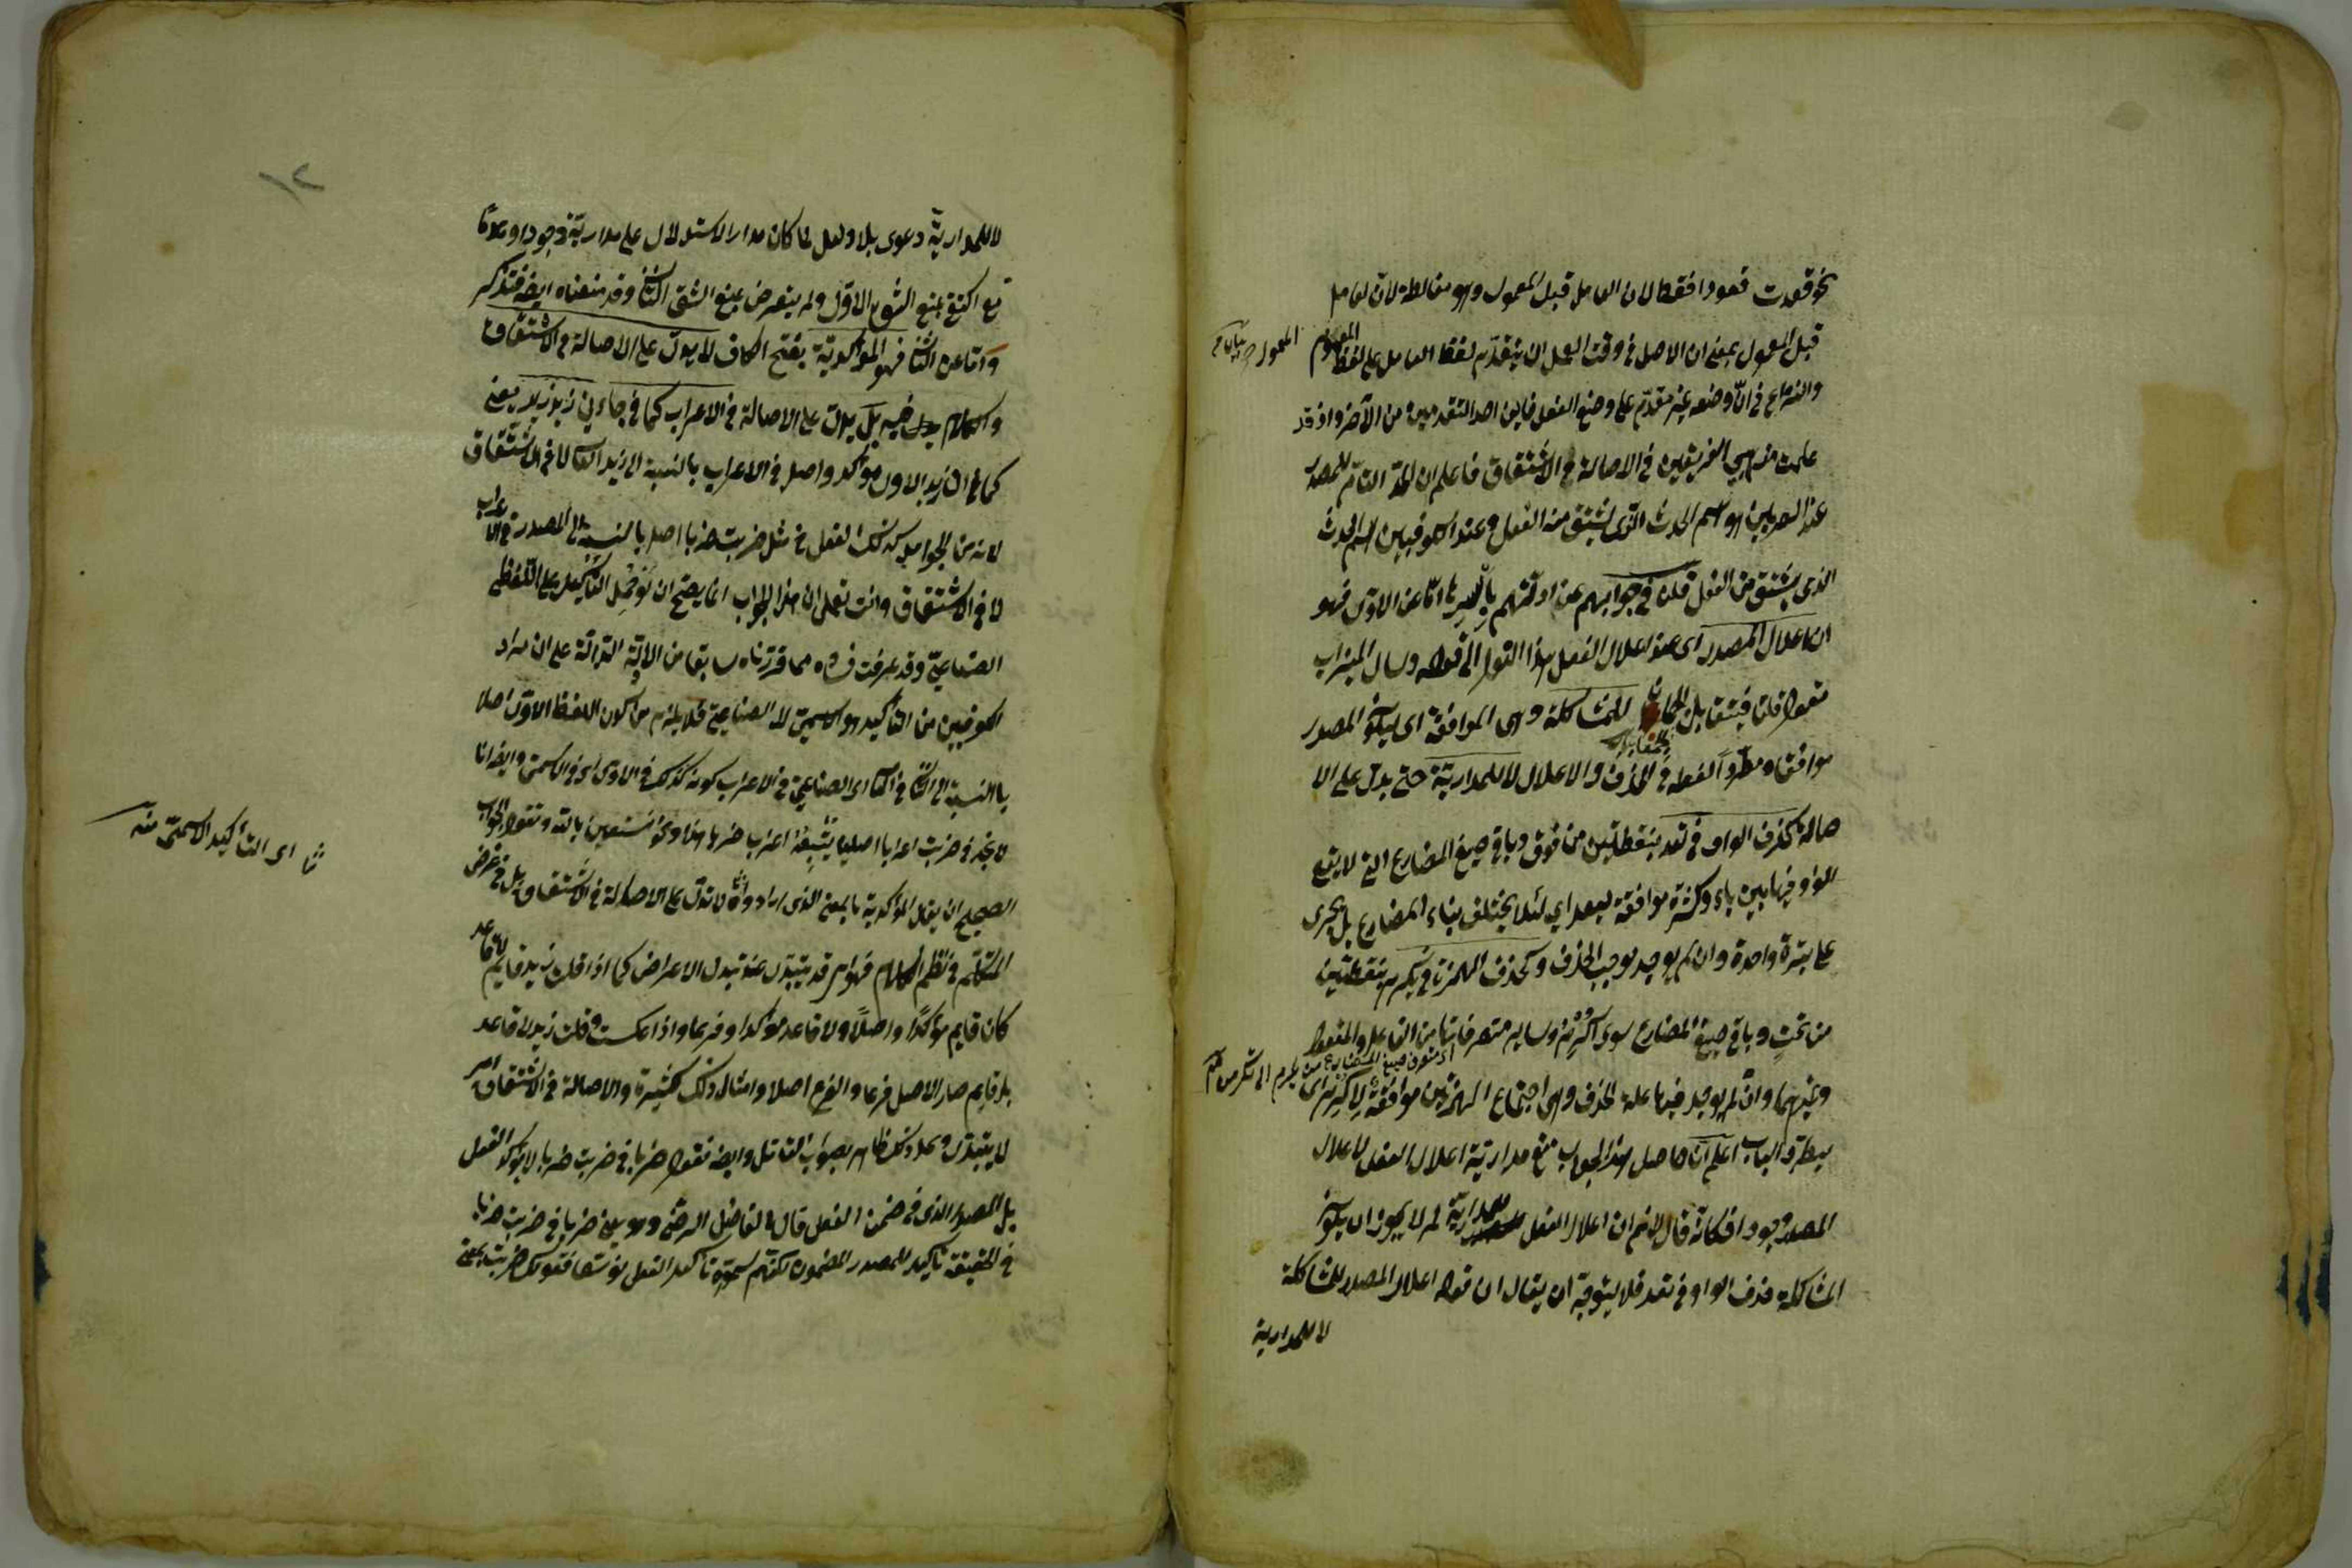 نحو قعدت قعودا فقط لان العامل قبل المعمول وهو مغالطة لان العامل
قبل المعمول بمعنى ان الاصل فى وقت العمل ان يتقدم لفظ العامل على لفظ المعمول
والنزاع فى ان وضعه غير مقدم على وضع الفعل فاين احد التقدمين من الآخر واذ قد
علمت مذهبى الفريقين فى الاصالة فى الاشتقاق فاعلم ان الحد التام للمصدر
عند البصريين هو اسم الحدث الذى يشتق منه الفعل وعند الكوفيين اسم الحدث
الذى يشتق من الفعل قلنا فى جوابهم عن ادلتهم اما عن الاول فهو
ان اعلال المصدر اى عند اعلال الفعل هذا القول الى قوله وسال الميزاب
للمشاكلة وهى الموافقة اى ليكون المصدر
موافقا ومطردا لفعله فى الحذف والاعلال لا للمدارية حتى يدل على الا
صالة كحذف الواو فى تعد بنقطتين من فوق وباقى صيغ المضارع التى لا يقع
الواو فيها بين ياء وكسرة موافقة ليعد اى لئلا يختلف بناء المضارع بل يجرى
على وتيرة واحدة وان لم يوجد موجب الحذف وكحذف الهمزة فى يكرم بنقطتين
من تحت وباقى صيغ المضارع سوى اكرم وساير متصرفاتها من الفاعل والمفعول
وغيرهما وان لم يوجد فيها علة الحذف وهى اجتماع الهمزتين موافقة لاكرم اى
ليطرد الباب اعلم ان حاصل هذا الجواب منع مدارية اعلال الفعل لاعلال
المصدر وجودا فكانه قال لا نم ان اعلال الفعل مدارية لم لا يجوز ان يكون
المشاكلة حذف الواو فى تعد فلا يتوجه ان يقال ان قوله اعلال المصدر للمشاكلة
لا للمدارية
١٢
لا للمدارية دعوى بلا دليل لما كان مدار الاستدلال على مدارية وجودا وعدما
نم اكتفى بمنع الشق الاول ولم يتعرض بمنع الشق الثانى وقد منعناه ايضا فتذكر
واما عن الثانى فهو المؤكدية بفتح الكاف لا يدل على الاصالة فى الاشتقاق
والكلام فيه بل يدل على الاصالة فى الاعراب كما فى جاءنى زيد زيد يعنى
كما ان زيد الاول مؤكد واصل فى الاعراب بالنسبة الى زيد الثانى لا فى الاشتقاق
لانه من الجوامد كذلك الفعل فى مثل ضربت ضربا اصل بالنسبة الى المصدر فى الاعراب
لا فى الاشتقاق وانت تعلم ان هذا الجواب انما يصح ان لو حمل التأكيد على اللفظى
الصناعى وقد عرفت فساده مما قررناه سابقا من الادلة الدالة على ان مراد
الكوفيين من التأكيد هو الاسمى لا الصناعى فلا يلزم من كون اللفظ الاول اصلا
بالنسبة الى الثانى فى التأكيد الصناعى فى الاعراب كونه كذلك فى الاول اى فى الاسمى وايضا انا
لا نجد فى ضربت اعرابا اصليا يتبعه اعراب ضربا هذا ونحن نستعين بالله ونقول الجواب
الصحيح ان يقال المؤكدية بالمعنى الذى ارادوا لا تدل على الاصالة فى الاشتقاق بل فى غرض
المتكلم فى نظم الكلام فهو امر قد يتبدل عند تبدل الاعراض كما اذا قلت زيد قايم لا قاعد
كان قايم مؤكدا واصلا ولا قاعد مؤكدا وفرعا واذا عكست وقلت زيد لا قاعد
بل قايم صار الاصل فرعا والفرع اصلا وامثال ذلك كثيرة والاصالة فى الاشتقاق امر
لا يتبدل وايضا نقول ضربا فى ضربت ضربا لا يؤكد الفعل
بل المصدر الذى فى ضمن الفعل قال الفاضل الرضى وهو يعنى ضربا فى ضربت ضربا
فى الحقيقة تاكيد للمصدر المضمون لكنهم سموه تاكيد الفعل توسعا فقولك ضربت بمعنى
اى التأكيد الاسمى منه